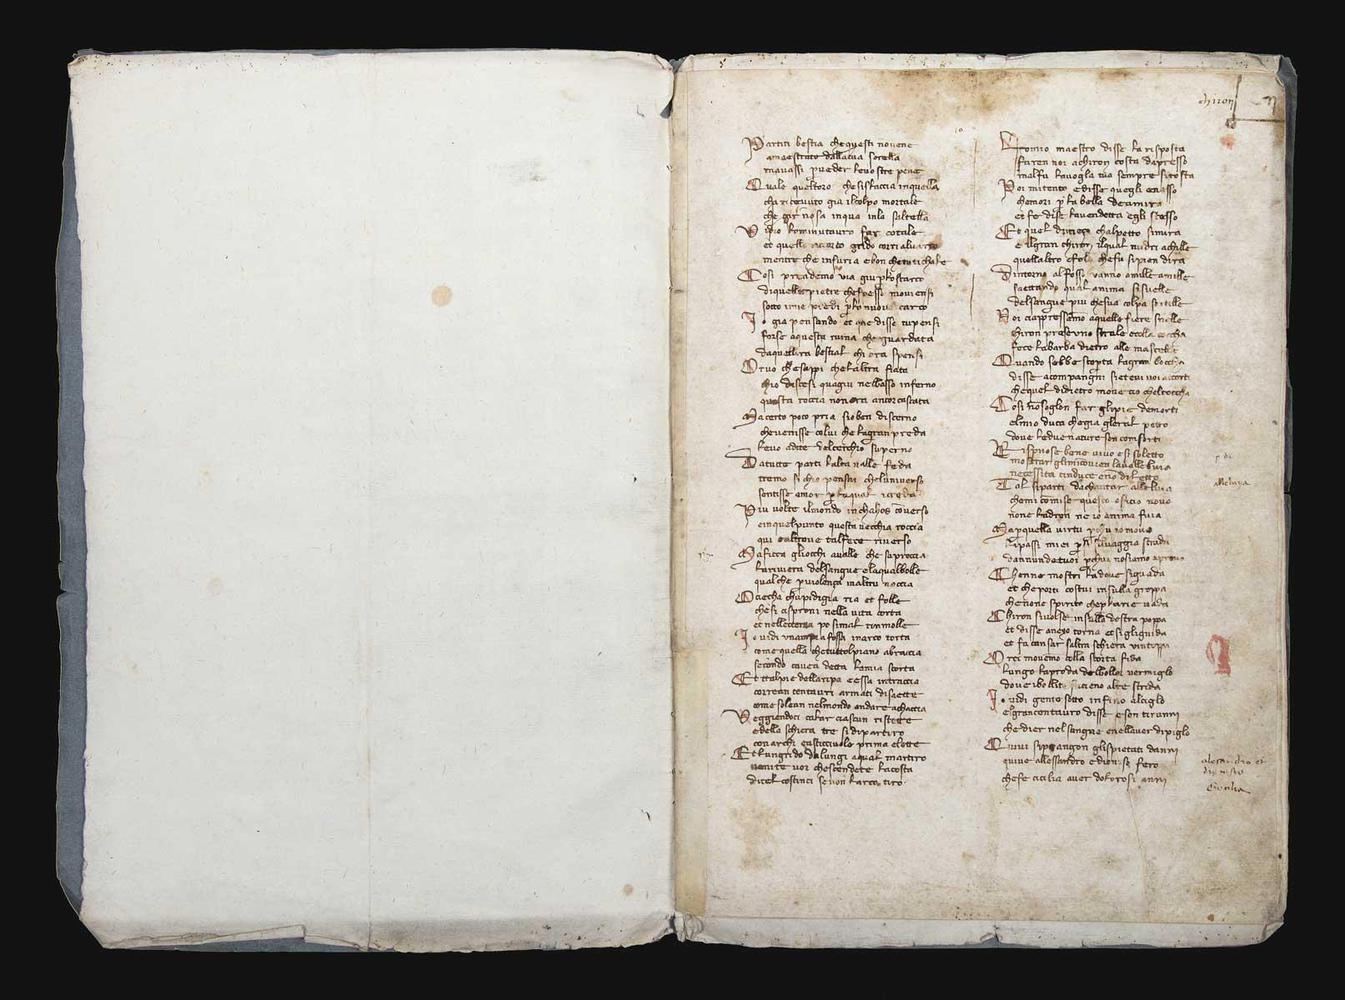 chiron
Partiti bestia che questi no vene
amaestrato dalla tua sorella
ma vassi p veder le vostre pene
Quale quel toro che si slaccia in quella
cha ricevuto gia il colpo mortale
che gir no sa
Vidio lo minutauro far cotale
et quello acorto grido corri al varco
mentre che infuria e bon che
Cosi prendemo via giu p lo scarco
di quelle pietre che spesso moviensi
sotto i mie piedi p lo nuovo carco
Io gia pensando et que disse tu pensi
forse a questa ruina che guardata
da quellira bestial chi ora spensi
Or vuo che sappi che laltra fiata
chio discesi quagiu nel basso inferno
questa roccia non era ancor cascata
Ma certo poco pria sio ben discerno
che venisse colui che la gran preda
levo a dite del cerchio superno
Da tutte parti lalta valle feda
tremo si chio pensai che luniverso
sentisse amor p lo qual
Piu volte il mondo in chahos coverso
e in quel punto questa vecchia roccia
qui e altrove tal fece riverso
Ma ficca gliocchi a valle che saproccia
la riviera del sangue e la qual bolle
qual che p violença in altru noccia
O ciecha chupidigia ria et folle
che si a sproni nella vita corta
et nell etterna po si mal cinmolle
Io vidi una ampia fossa in arco torta
come quella che tutto l piano abraccia
secondo cavea detta la mia scorta
Et tral pie della ripa e essa in traccia
correan centauri armati di saette
come solean nel mondo andare a chaccia
Veggiendoci calar ciascun ristette
e della schiera tre si dipartiro
con archi e asticciuole prima elette
Et lun grido da lungi a qual martiro
venite voi che scendete la costa
ditel costinci se non larco tiro
Lo mio maestro disse la risposta
faren noi a chiron costa dapresso
mal fu la voglia tua sempre si tosta
Poi mi tento e disse quegli e nesso
che mori p la bella deianira
et fe di se la vendetta egli stesso
Et quel di mezo chal petto si mira
e il gran chiron il qual nudri achille
quellaltro e folo che fu si pien dira
Dintorno al fosso vanno a mille a mille
saettando qual anima si svelle
del sangue piu che sua colpa sortille
Noi ciappressamo a quelle fiere snelle
chiron prese uno strale e colla cocha
fece la barba dietro alle mascelle
Quando sebbe scoperta la gran boccha
disse a compangni siete voi acorti
che quel di dietro move cio chel toccha
Cosi no soglon far glipie de morti
el mio duca che gia gler al petto
dove le due nature son consorti
Rispuose bene e vivo e si soletto
mostrar gli mi conven la valle buia
necessita cinduce e no diletto
Tal si parti da chantar alleluia
che mi comise questo oficio novo
none ladron ne io anima fuia
Ma p quella virtu p chu io movo
li passi miei p si selvaggia strada
danne un de tuoi p chui noi siamo a provo
Che nne mostri la dove si guada
et che porti costui in sulla groppa
che none spirito che p larie vada
Chiron si volse in sulla destra poppa
et disse a nesso torna et si gli guida
et fa cansar saltra schiera vintoppa
Or ci movemo colla scorta fida
lungo la proda del bollor vermiglo
dove i bolliti facieno alte strida
Io vidi gente sotto infino al ciglo
el gran centauro disse e son tiranni
che dier nel sangue e nellaver di piglo
Quivi si piangon gli spietati danni
quive allessandro e dionisi fero
che fe cicilia aver dolorosi anni
alleluya
alesandro et
dionisio
Cicilia